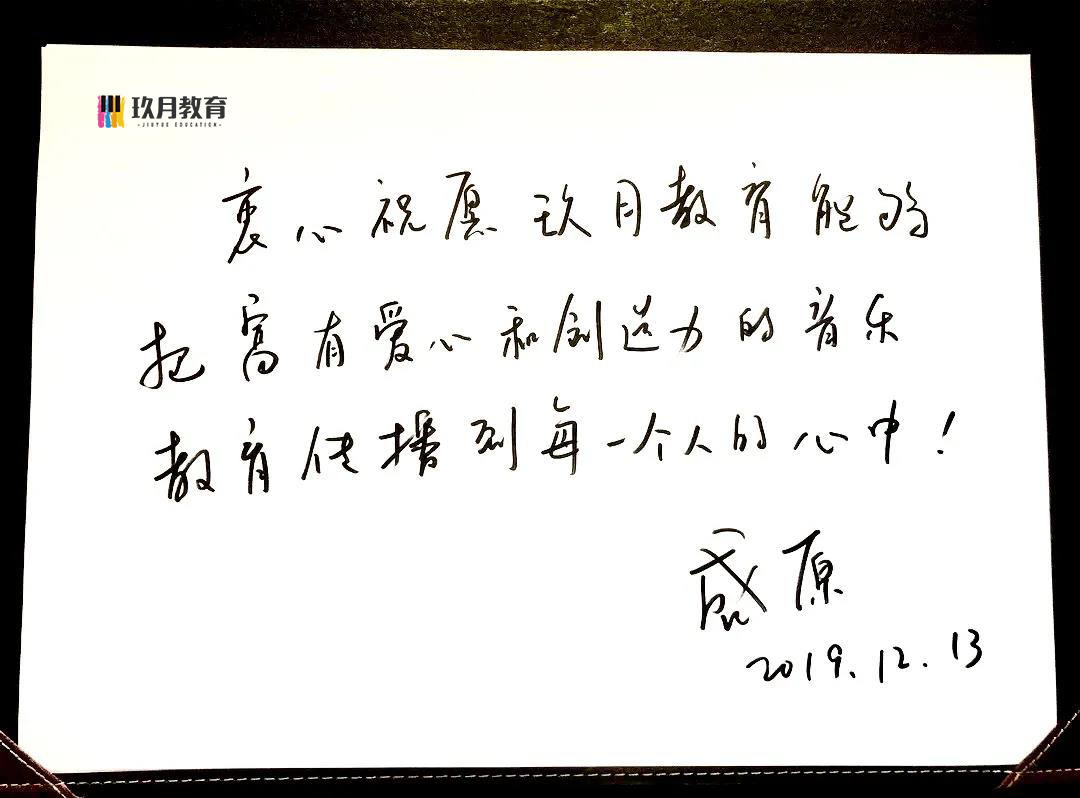 玖月教育
-JIUYUE EDUCATION-
衷心祝愿玖月教育能够
把富有爱心和创造力的音乐
教育传播到每一个人的心中！
盛原
2019.12.13